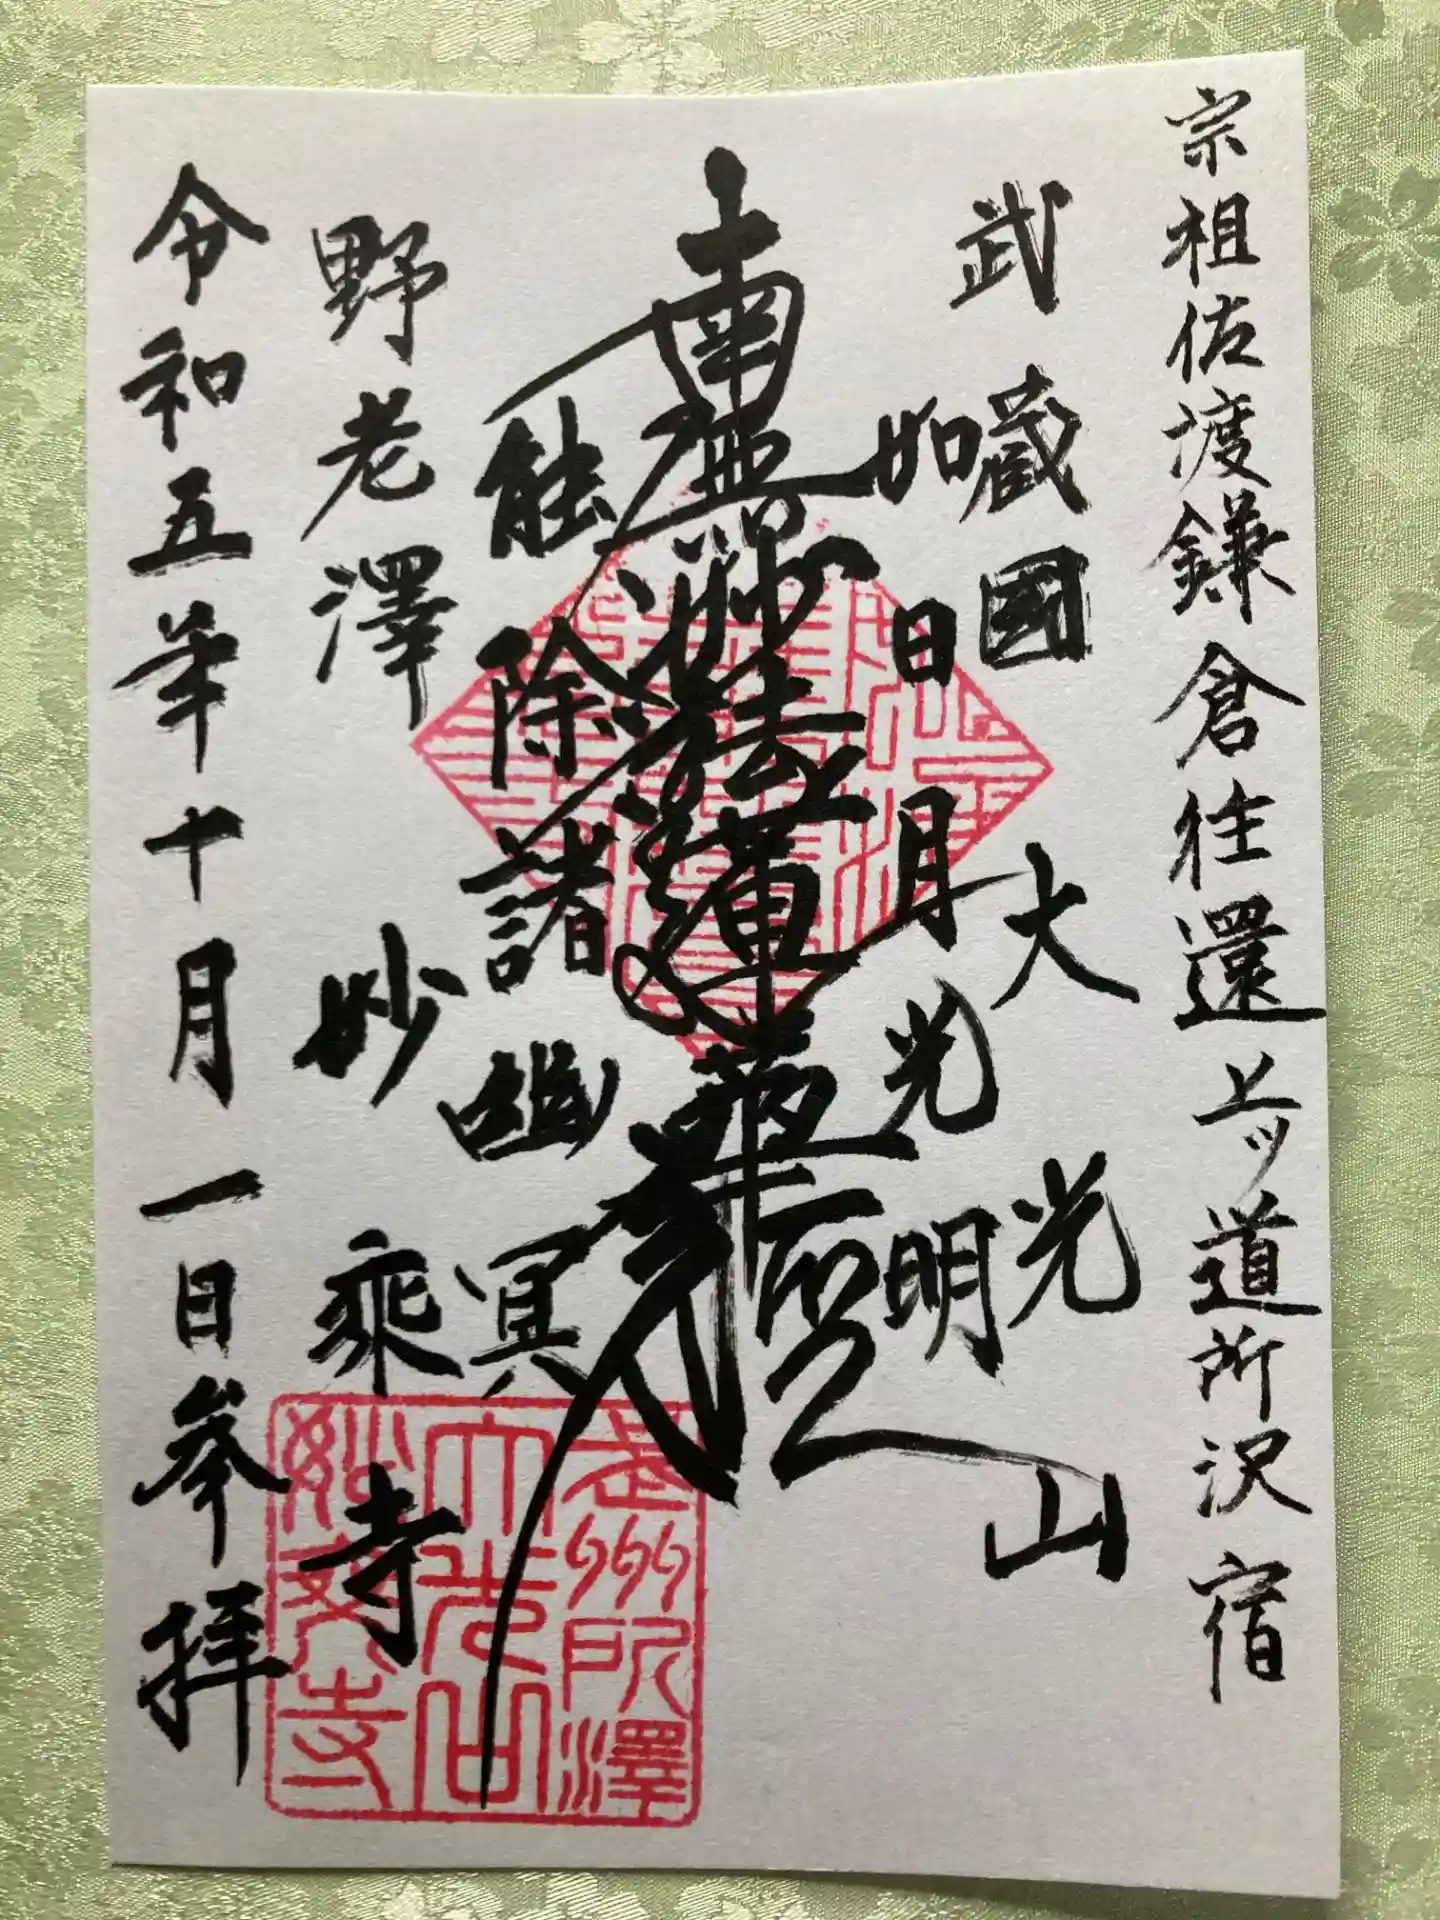 宗祖佐渡鎌倉往還上ッ道所沢宿
武蔵國
大光山
如日月光明
南無妙法蓮華経
能除諸幽冥
野老澤
妙乗寺
令和五年十月一日参拝